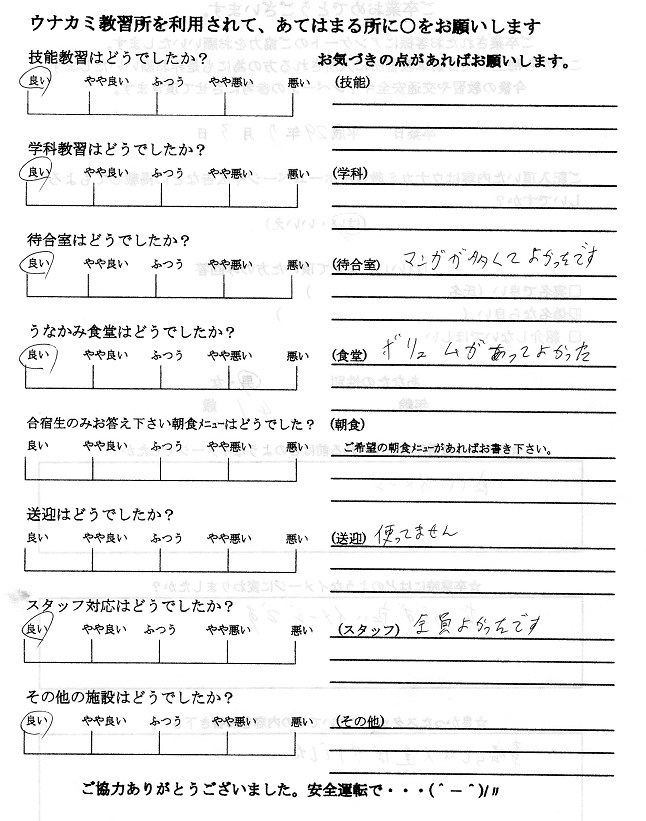 ウナカミ教習所を利用されて、あてはまる所に○をお願いします
技能教習はどうでしたか？
お気づきの点があればお願いします。
良い やや良い ふつう やや悪い 悪い
(技能)
学科教習はどうでしたか？
良い やや良い ふつう やや悪い 悪い
(学科)
待合室はどうでしたか？
良い やや良い ふつう やや悪い 悪い
(待合室) マンガが多くてよかったです
うなかみ食堂はどうでしたか？
良い やや良い ふつう やや悪い 悪い
(食堂) ボリュームがあってよかった
合宿生のみお答え下さい朝食ﾒﾆｭｰはどうでした？
(朝食)
良い やや良い ふつう やや悪い 悪い
ご希望の朝食ﾒﾆｭｰがあればお書き下さい。
送迎はどうでしたか？
良い やや良い ふつう やや悪い 悪い
(送迎) 使ってません
スタッフ対応はどうでしたか？
良い やや良い ふつう やや悪い 悪い
(スタッフ) 全員よかったです
その他の施設はどうでしたか？
良い やや良い ふつう やや悪い 悪い
(その他)
ご協力ありがとうございました。安全運転で・・・(＾－＾)/〃